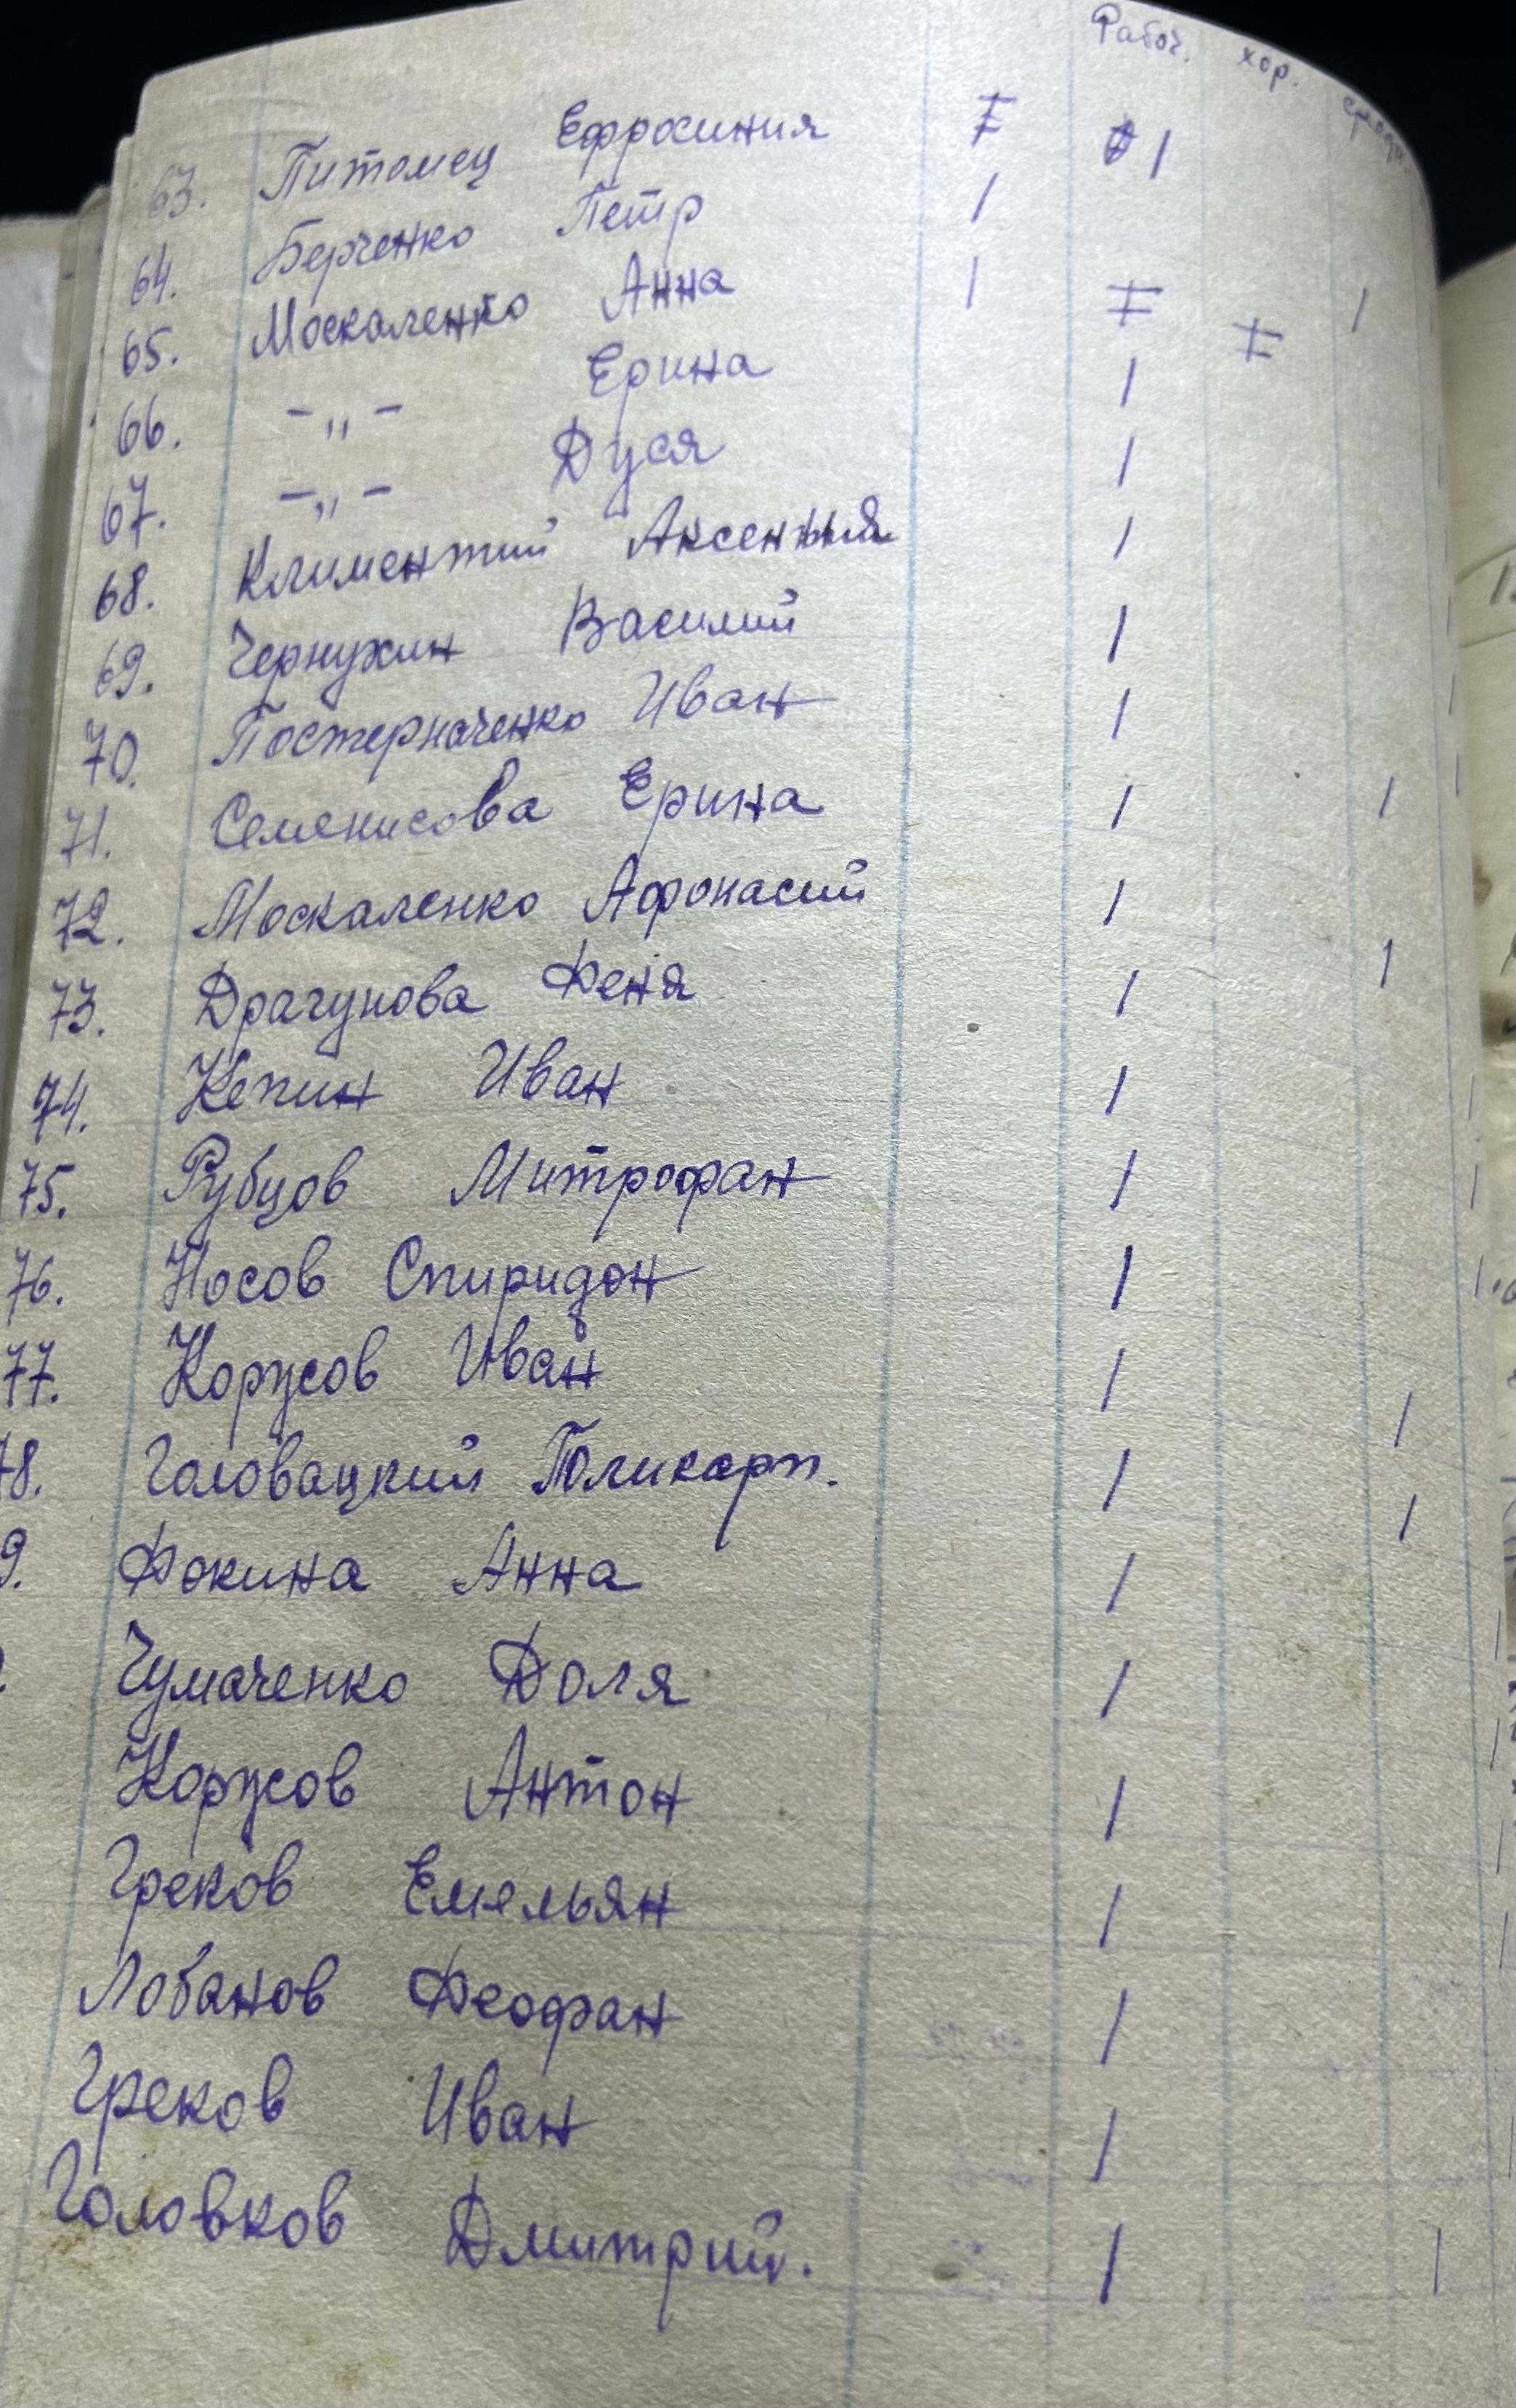 Рабоч. хор. средн.
63. Питомец Ефросиния
64. Берченко Петр
65. Москаленко Анна
66. -„- Ерина
67. -„- Дуся
68. Климентий Аксенья
69. Чернухин Василий
70. Постерначенко Иван
71. Семенисова Ерина
72. Москаленко Афонасий
73. Драгунова Феня
74. Кепин Иван
75. Рубцов Митрофан
76. Носов Спиридон
77. Корусов Иван
78. Головацкий Поликарп.
9. Фокина Анна
Чумаченко Доля
Корусов Антон
Греков Емельян
Лобанов Феофан
Греков Иван
Головков Дмитрий.